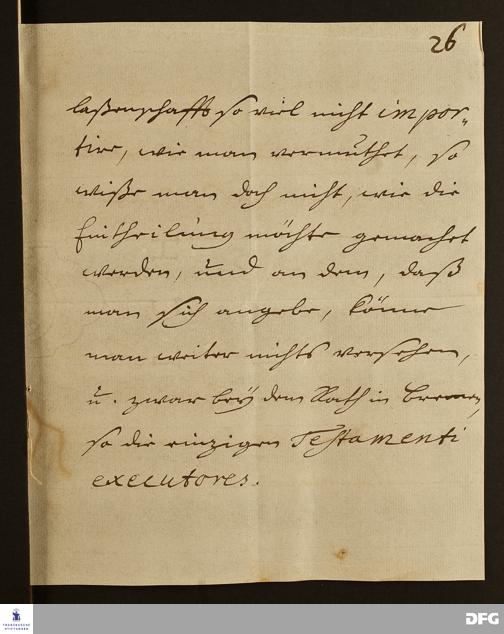 26
laßenschafft so viel nicht impor-
tire, wie man vermuthet, so
wiße man doch nicht, wie die
Eintheilung möchte gemachet
werden, und an dem, daß
man sich angebe, könne
man weiter nichts versehen,
u. zwar beÿ dem Rath in Bremen,
so die einzigen Testamenti
executores.
FRANCKESCHE
STIFTUNGEN
DFG